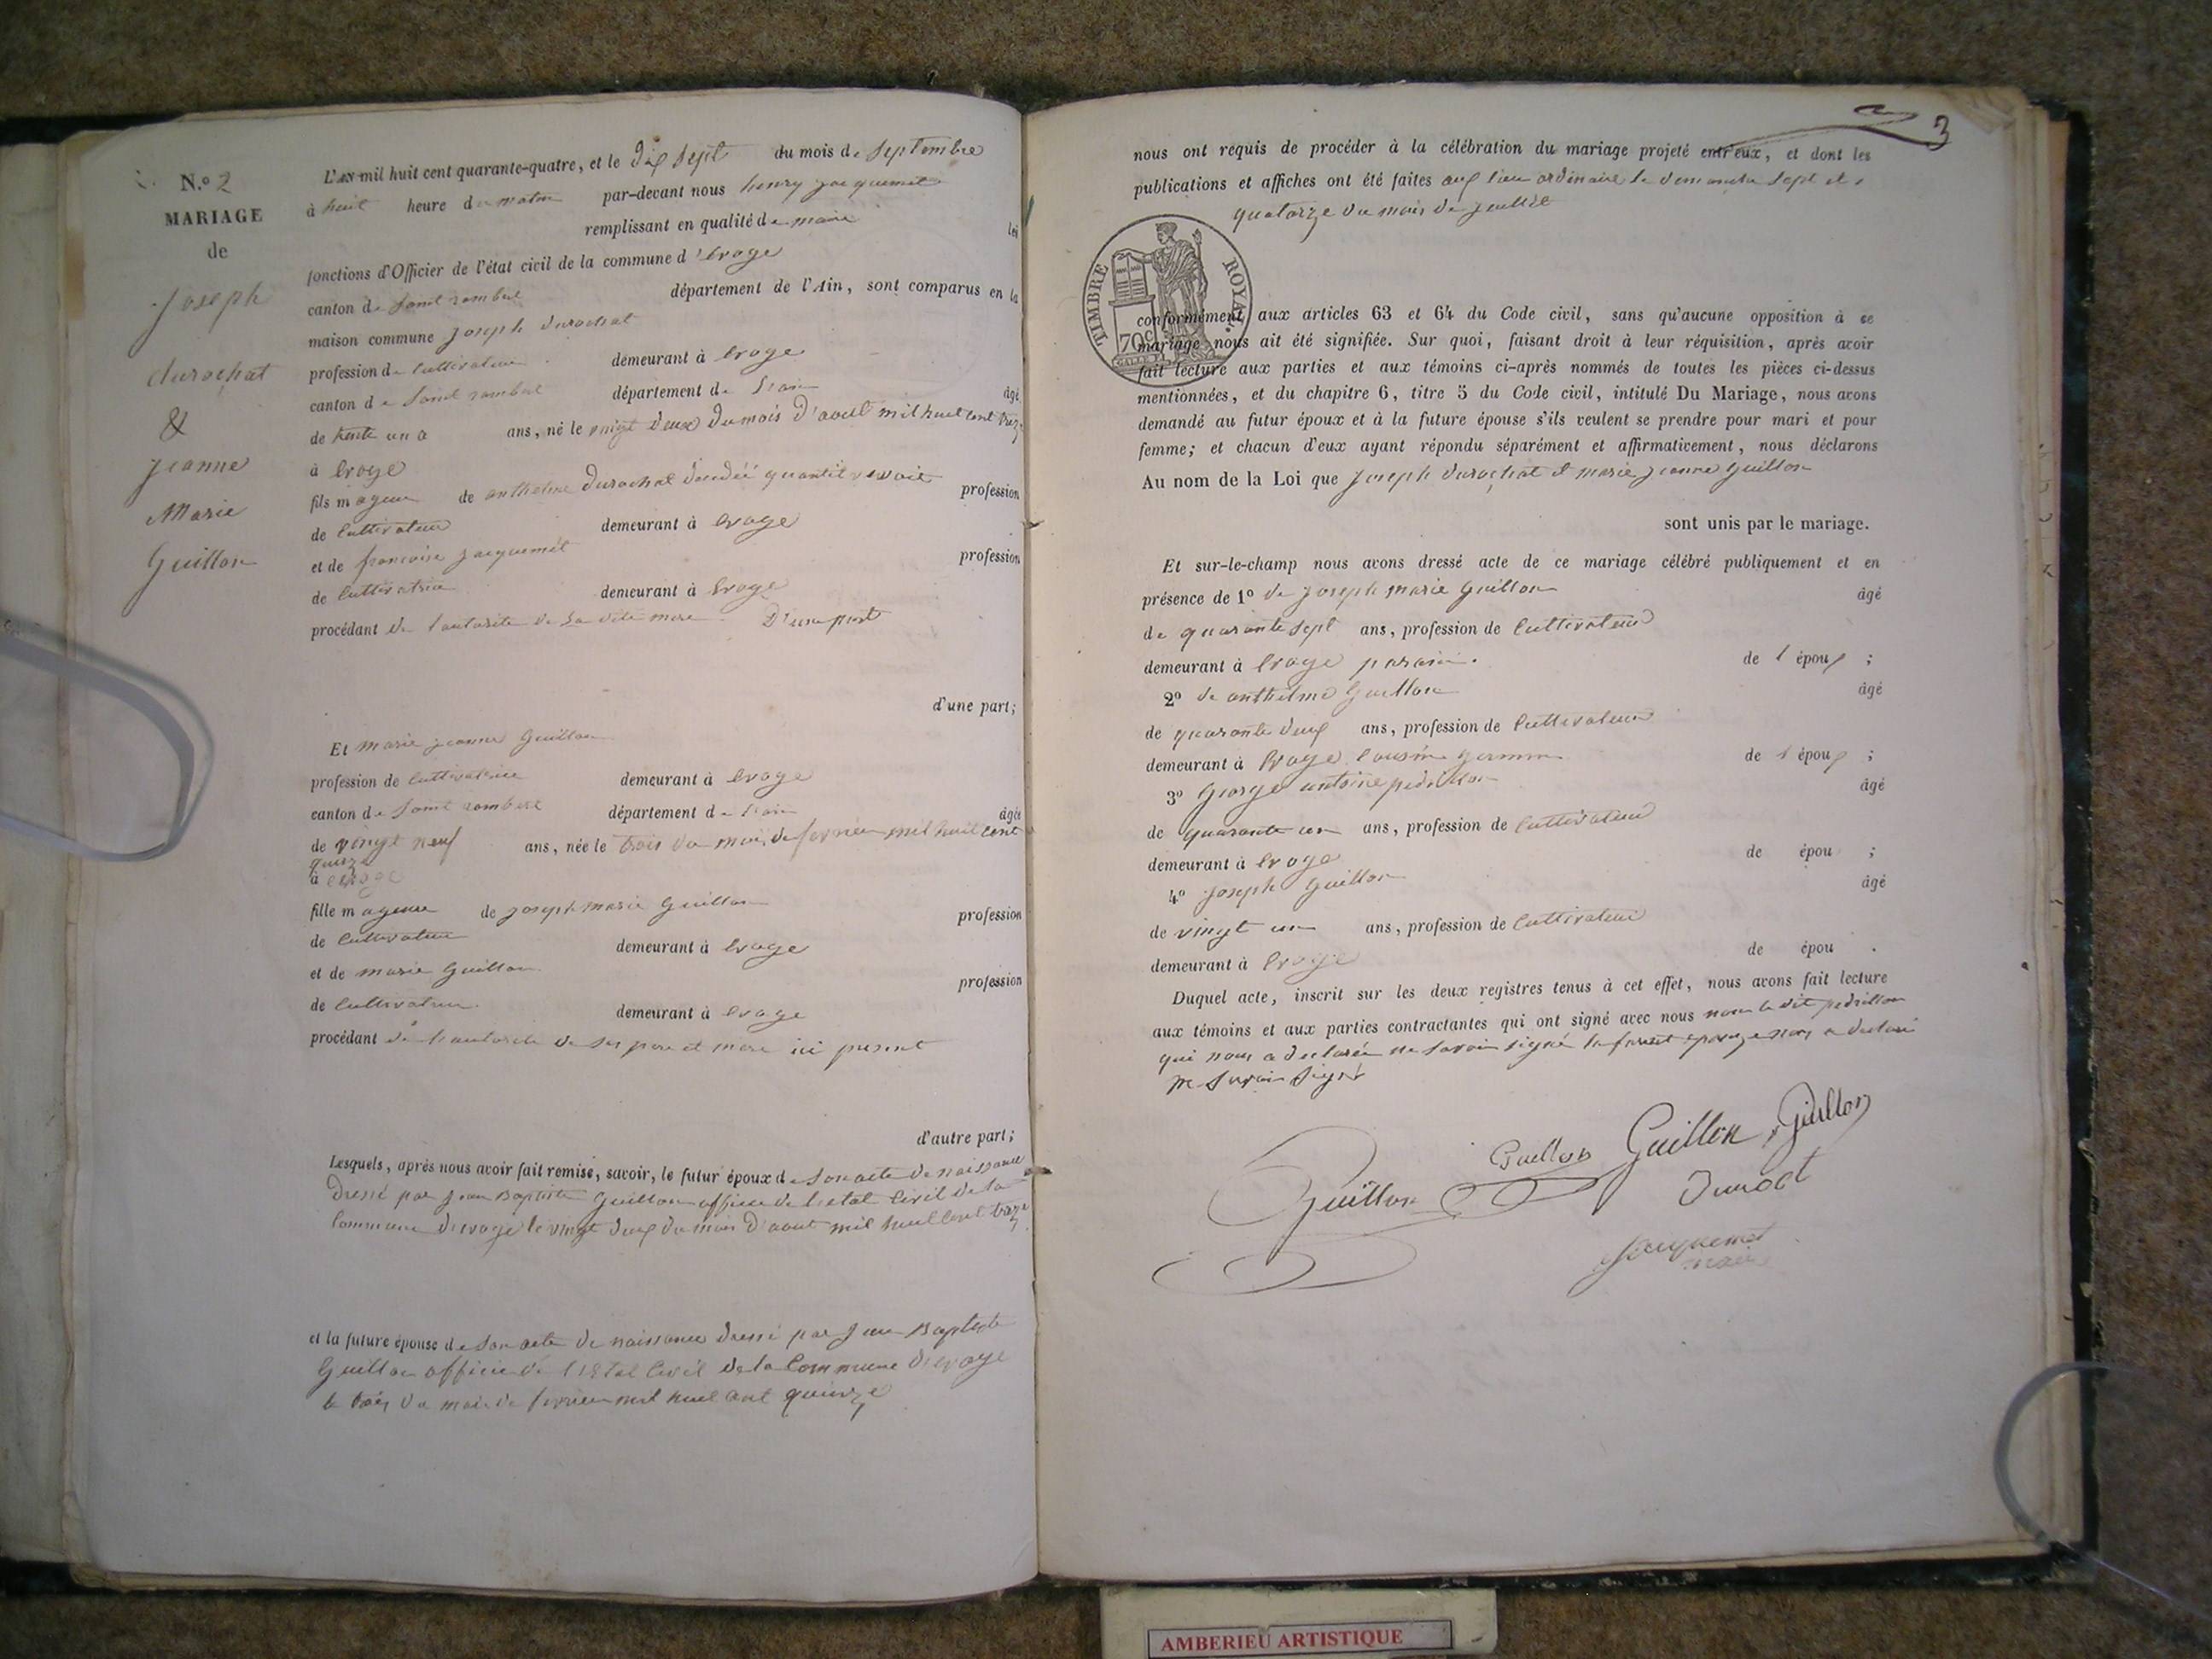 N.º 2
MARIAGE
de
Joseph
durochat
&
jeanne
Marie
Guillon
L'AN mil huit cent quarante-quatre, et le dix sept du mois de septembre
à huit heure du matin par-devant nous henry jacquemet
remplissant en qualité de maire les
fonctions d'Officier de l'état civil de la commune d'evoge
canton de saint rambert département de l'Ain, sont comparus en la
maison commune joseph durochat
profession de cultivateur demeurant à evoge
canton de saint rambert département de l'ain âgé
de trente un ans, né le vingt deux du mois d'aout mil huit cent treize
à evoge
fils mageur de anthelme durochat décédé quantil vivoit profession
de cultivateur demeurant à evoge
et de françoise jacquemet profession
de cultivatrice demeurant à evoge
procédant de l'autorité de sa dite mere D'une part
d'une part;
Et marie jeanne Guillon
profession de cultivatrice demeurant à evoge
canton de saint rambert département de l'ain âgée
de vingt neuf ans, née le trois du mois de fevrier mil huit cent
quinze
à evoge
fille mageure de joseph marie Guillon profession
de cultivateur demeurant à evoge
et de marie Guillon profession
de cultivateur demeurant à evoge
procédant de l'autorité de ses pere et mere ici present
d'autre part;
Lesquels, après nous avoir fait remise, savoir, le futur époux de son acte de naissance
dressé par jean Baptiste Guillon officier de l'etat civil de la
commune d'evoge le vingt deux du mois d'aout mil huit cent treize
et la future épouse de son acte de naissance dressé par jean Baptiste
Guillon officier de l'Etat Civil de la Commune d'evoge
le trois du mois de fevrier mil huit cent quinze
3
nous ont requis de procéder à la célébration du mariage projeté entr'eux, et dont les
publications et affiches ont été faites aux lieu ordinaire le dimanche sept et
quatorze du mois de juillet
TIMBRE ROYAL
70c
conformément aux articles 63 et 64 du Code civil, sans qu'aucune opposition à ce
mariage nous ait été signifiée. Sur quoi, faisant droit à leur réquisition, après avoir
fait lecture aux parties et aux témoins ci-après nommés de toutes les pièces ci-dessus
mentionnées, et du chapitre 6, titre 5 du Code civil, intitulé Du Mariage, nous avons
demandé au futur époux et à la future épouse s'ils veulent se prendre pour mari et pour
femme; et chacun d'eux ayant répondu séparément et affirmativement, nous déclarons
Au nom de la Loi que joseph durochat et marie jeanne Guillon
sont unis par le mariage.
Et sur-le-champ nous avons dressé acte de ce mariage célébré publiquement et en
présence de 1º de joseph marie Guillon âgé
de quarante sept ans, profession de cultivateur
demeurant à evoge parain de l'époux;
2º de anthelme Guillon âgé
de quarante deux ans, profession de cultivateur
demeurant à evoge cousin germain de l'époux;
3º George antoine pedrillon âgé
de quarante un ans, profession de cultivateur
demeurant à evoge de épou ;
4º joseph Guillon âgé
de vingt un ans, profession de cultivateur
demeurant à evoge de épou .
Duquel acte, inscrit sur les deux registres tenus à cet effet, nous avons fait lecture
aux témoins et aux parties contractantes qui ont signé avec nous non le dit pedrillon
qui nous a declarée ne savoir signé la future epouze nous a declaré
ne savoir signé
Guillon Guillon Guillon Guillon
Durochat
Jacquemet
maire
AMBERIEU ARTISTIQUE